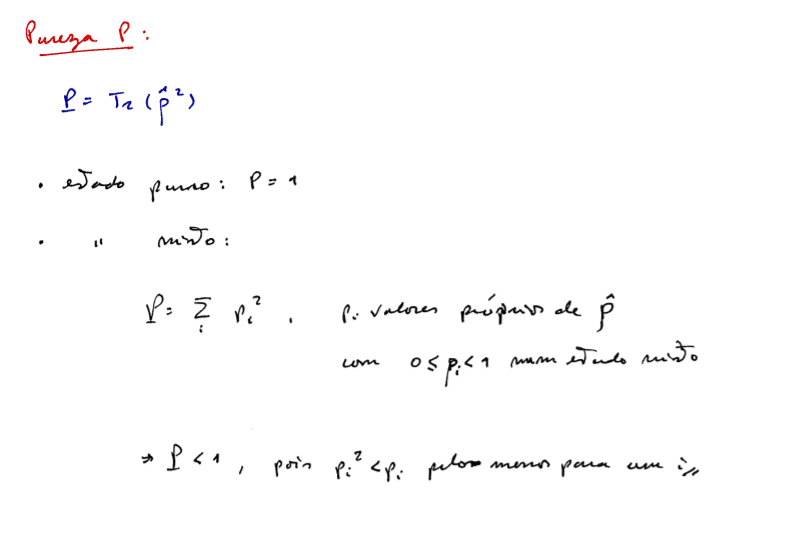 Pureza P:
P = Tr (ρ̂²)
• estado puro: P = 1
• " misto:
P = Σᵢ pᵢ², pᵢ valores próprios de ρ̂
com 0 ≤ pᵢ < 1 num estado misto
⇒ P < 1, pois pᵢ² < pᵢ pelo menos para um i //